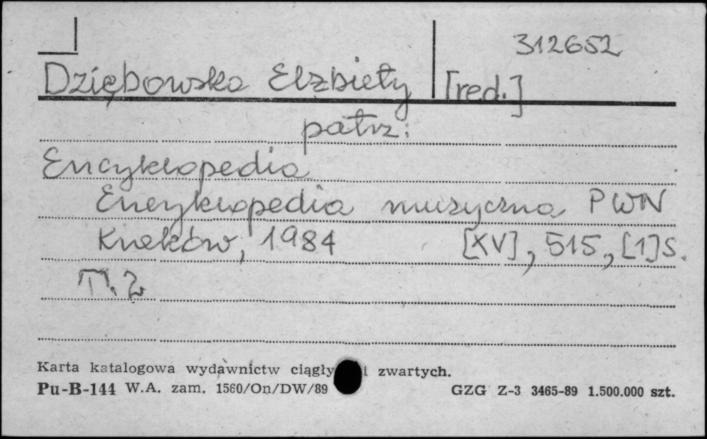 312652
Dziębowska Elżbiety [red.]
patrz:
Encyklopedia
Encyklopedia muzyczna PWN
Kraków, 1984 [XV], 515, [1]s.
T. 2
Karta katalogowa wydawnictw ciągły i zwartych.
Pu-B-144 W.A. zam. 1560/On/DW/89 GZG Z-3 3465-89 1.500.000 szt.